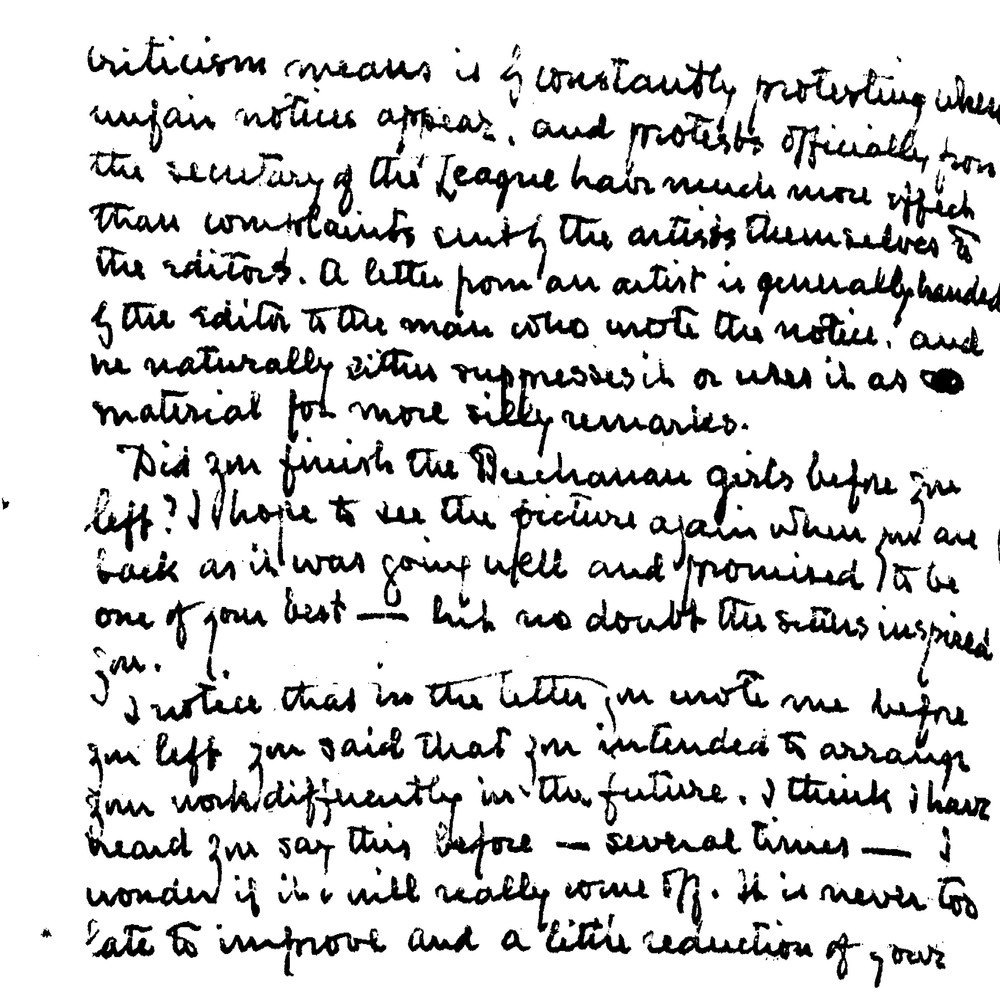 criticism means is by constantly protesting when
unfair notices appear, and protests officially from
the secretary of the League have much more effect
than complaints sent by the artists themselves to
the editors. A letter from an artist is generally handed
by the editor to the man who wrote the notice, and
he naturally either suppresses it or uses it as
material for more silly remarks.
Did you finish the Buchanan girls before you
left? I hope to see the picture again when you are
back as it was going well and promised to be
one of your best — but no doubt the sitters inspired
you.
I notice that in the letter you wrote me before
you left you said that you intended to arrange
your work differently in the future. I think I have
heard you say this before — several times — I
wonder if it will really come off. It is never too
late to improve and a little reduction of your